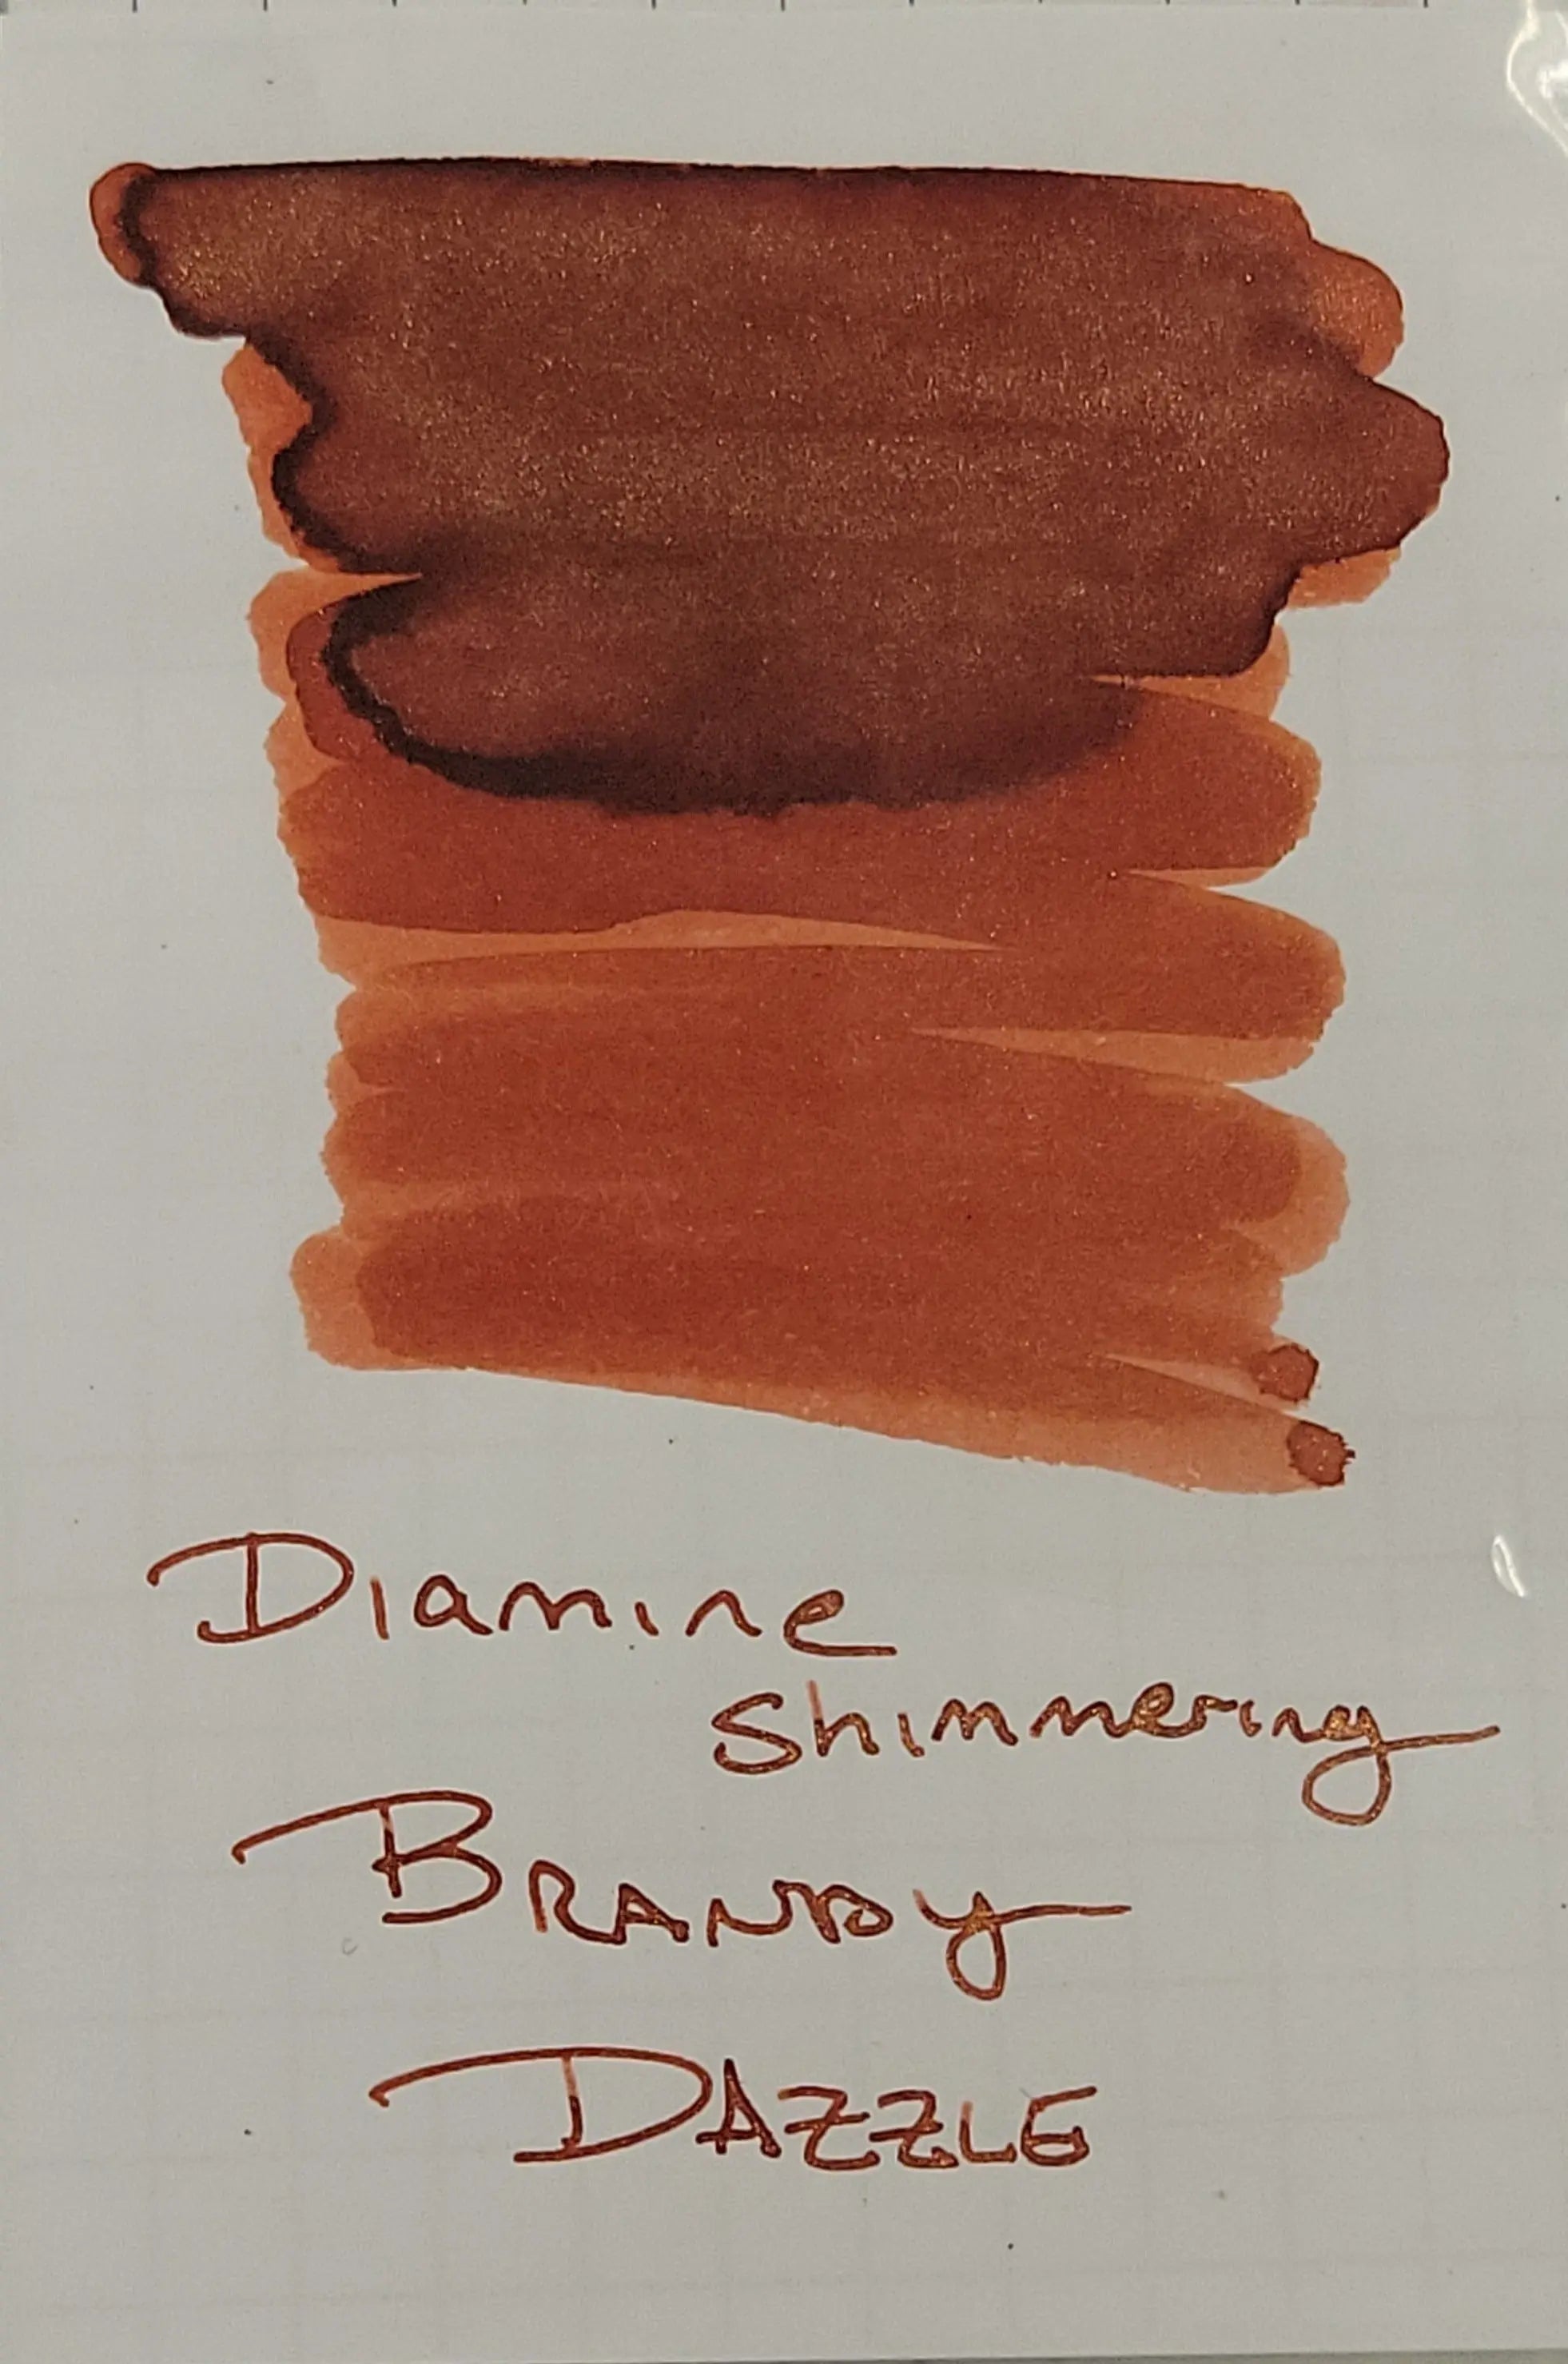 Diamine
Shimmering
BRANDY
DAZZLE